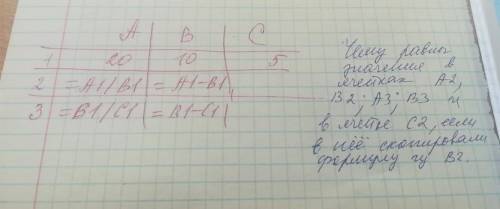 A B C
1 20 10 5
2 =A1/B1 =A1-B1
3 =B1/C1 =B1-C1
Чему равны
значения в
ячейках A2,
B2; A3; B3 и
в ячейке C2, если
в неё скопировали
формулу из B2.